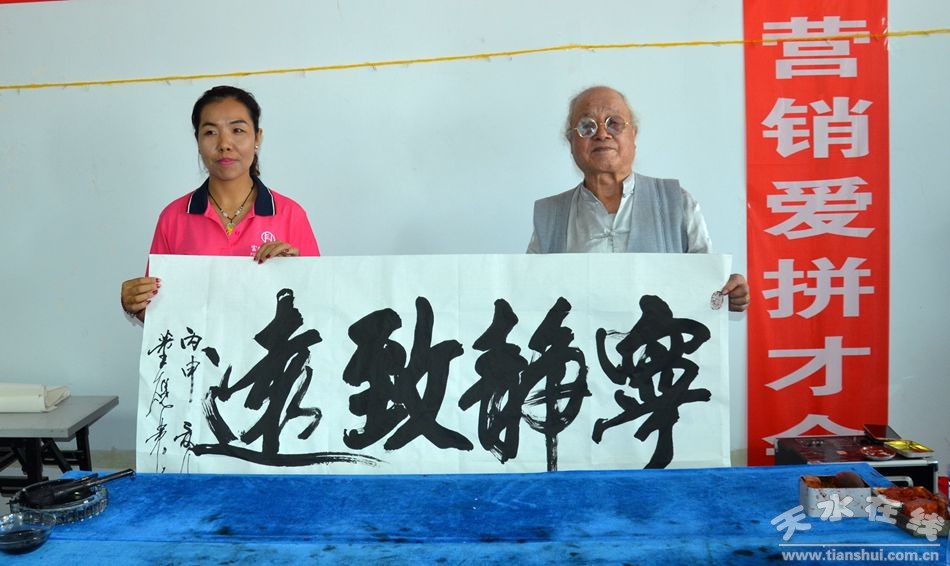 寧靜致遠
丙申
董應
营销爱拼才会
天水在线
www.tianshui.com.cn